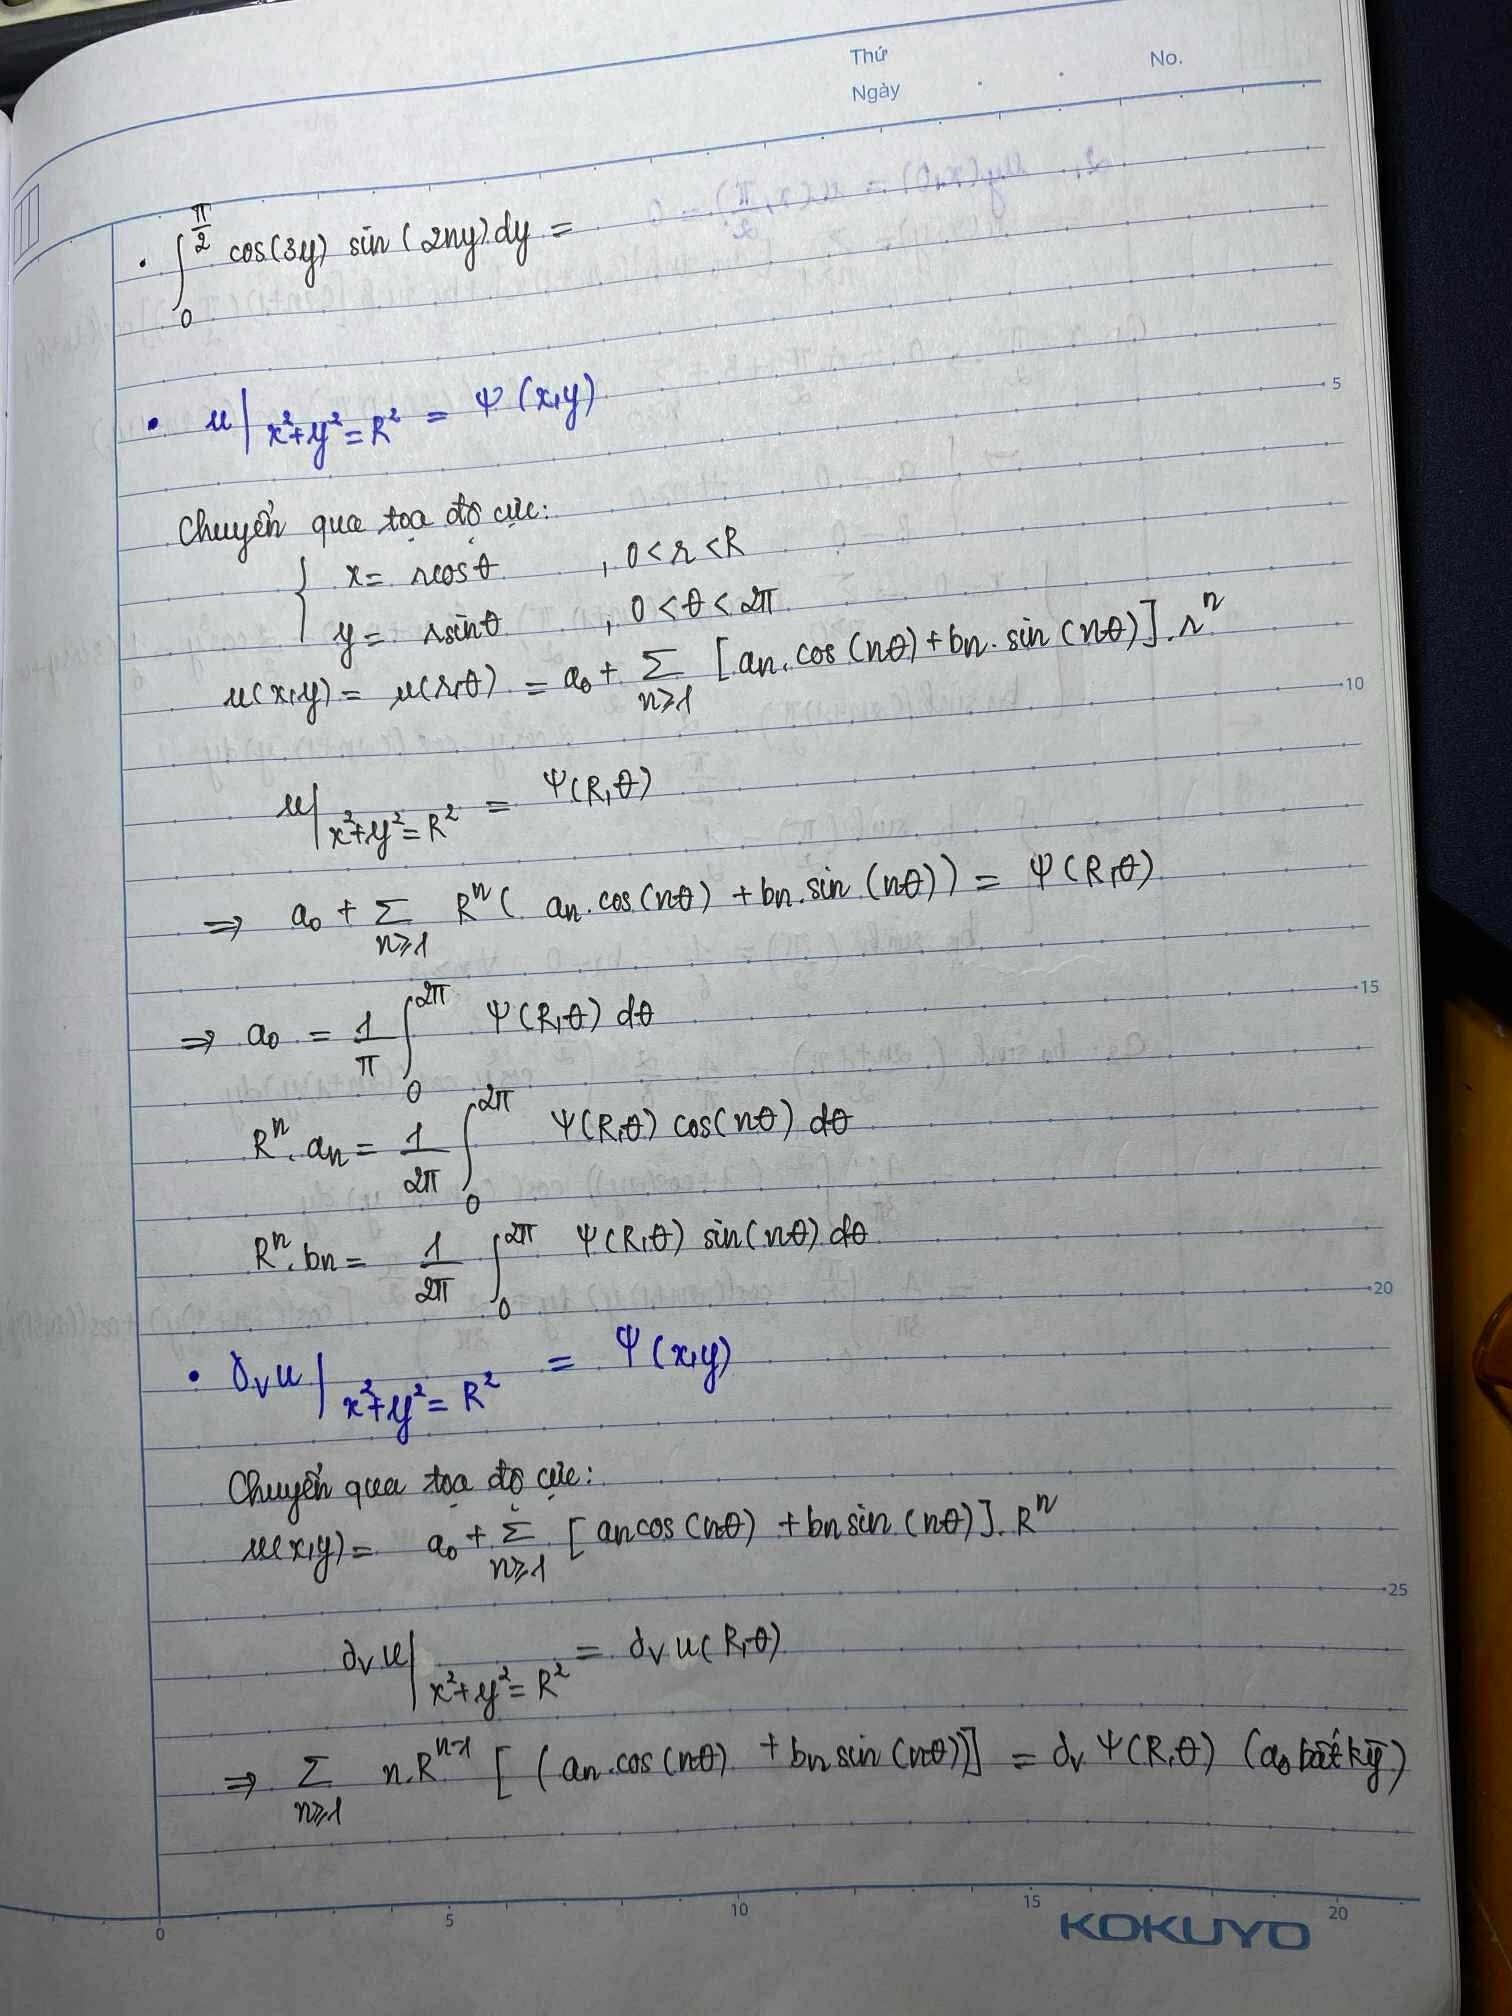 Thứ
Ngày
No.
• ∫₀^{π/2} cos(3y) sin(2ny) dy =
• u|_{x²+y²=R²} = Ψ(x,y)
Chuyển qua tọa độ cực:
{ x = rcosθ , 0 < r < R
y = rsinθ , 0 < θ < 2π
u(x,y) = u(r,θ) = a₀ + Σ_{n≥1} [an.cos(nθ) + bn.sin(nθ)].rⁿ
u|_{x²+y²=R²} = Ψ(R,θ)
⇒ a₀ + Σ_{n≥1} Rⁿ( an.cos(nθ) + bn.sin(nθ)) = Ψ(R,θ)
⇒ a₀ = 1/π ∫₀^{2π} Ψ(R,θ) dθ
Rⁿ.an = 1/2π ∫₀^{2π} Ψ(R,θ) cos(nθ) dθ
Rⁿ.bn = 1/2π ∫₀^{2π} Ψ(R,θ) sin(nθ) dθ
• ∂ᵥu|_{x²+y²=R²} = Ψ(x,y)
Chuyển qua tọa độ cực:
u(x,y) = a₀ + Σ_{n≥1} [ancos(nθ) + bnsin(nθ)].Rⁿ
∂ᵥu|_{x²+y²=R²} = ∂ᵥu(R,θ)
⇒ Σ_{n≥1} n.Rⁿ⁻¹ [(an.cos(nθ) + bnsin(nθ))] = ∂ᵥΨ(R,θ) (a₀ bất kỳ)
5
10
15
20
25
0
5
10
15
20
KOKUYO